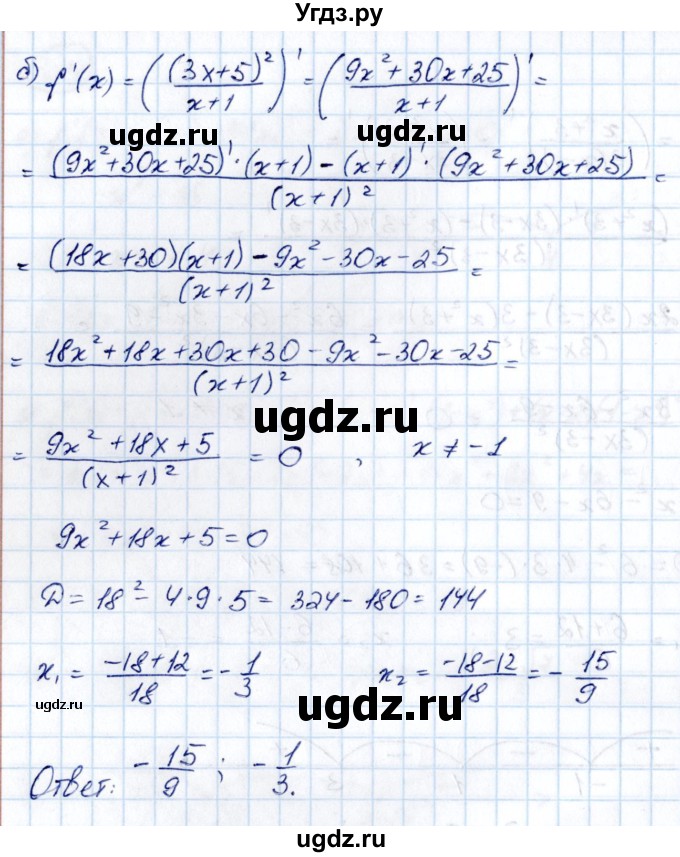 Угдз.ру
б) f'(x) = ((3x+5)²/(x+1))' = ((9x²+30x+25)/(x+1))' =
ugdz.ru ugdz.ru
= ((9x²+30x+25)'·(x+1) – (x+1)'·(9x²+30x+25))/(x+1)² =
= ((18x+30)(x+1) – 9x² – 30x – 25)/(x+1)² =
= (18x²+18x+30x+30 – 9x² – 30x – 25)/(x+1)² =
ugdz.ru
= (9x²+18x+5)/(x+1)² = 0 , x ≠ -1
9x²+18x+5=0
D = 18² – 4·9·5 = 324 – 180 = 144
x₁ = (-18+12)/18 = -1/3 x₂ = (-18-12)/18 = -15/9
ugdz.ru ugdz.ru
Ответ: -15/9 ; -1/3.
ugdz.ru